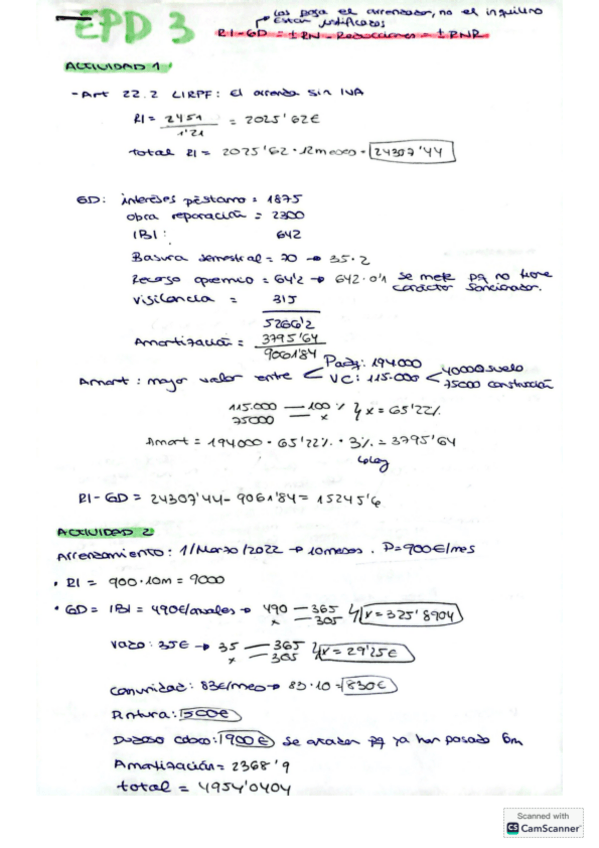 Los paga el arrendador, no el inquilino
Están justificados
EPD 3
RI-GD = ±RN - Reducciones = ±RNR
ACTIVIDAD 1
- Art 22.2 LIRPF: El arrenda sin IVA
RI = 2451 / 1'21 = 2025'62€
Total RI = 2025'62 · 12meses = 24307'44
GD: intereses préstamo = 1875
obra reparación = 2300
IBI: 642
Basura semestral = 70 → 35·2
Recargo apremio = 64'2 → 642·0'1 se mete pq no tiene
carácter sancionador.
Vigilancia = 315
5266'2
Amortización = 3795'64
9061'84
Padq: 194000
Amort: mayor valor entre < VC: 115.000 < 40000 suelo
75000 construcción
115.000 — 100% } x = 65'22%
75000 — x
Amort = 194000 · 65'22% · 3% = 3795'64
RI-GD = 24307'44 - 9061'84 = 15245'6
ACTIVIDAD 2
Arrendamiento: 1/Marzo/2022 → 10meses. P=900€/mes
• RI = 900·10m = 9000
• GD = IBI = 490€/anuales → 490 — 365 } x = 325'8904
x — 305
Vado: 35€ → 35 — 365 } x = 29'25€
x — 305
Comunidad: 83€/mes → 83·10 = 830€
Pintura: 500€
Dudoso cobro: 1900€ se añaden pq ya han pasado 6m
Amortización = 2368'9
total = 4954'0404
Scanned with
CS CamScanner